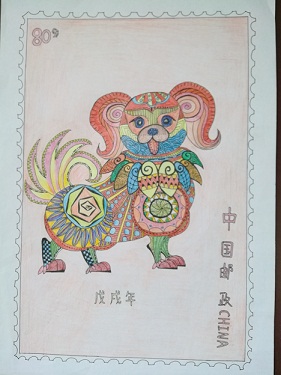 80分
中国邮政CHINA
戊戌年